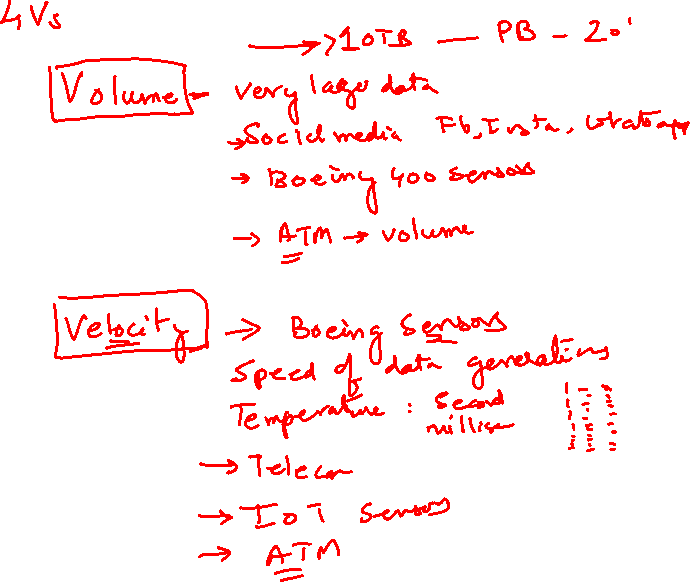 4 Vs
→ >10TB — PB - 20'
Volume - very large data
→ Social media Fb, Insta, Whatsapp
→ Boeing 400 sensors
→ ATM → volume
Velocity → Boeing Sensors
Speed of data generations
Temperature : Second
millise
→ Telecom
→ IoT Sensors
→ ATM